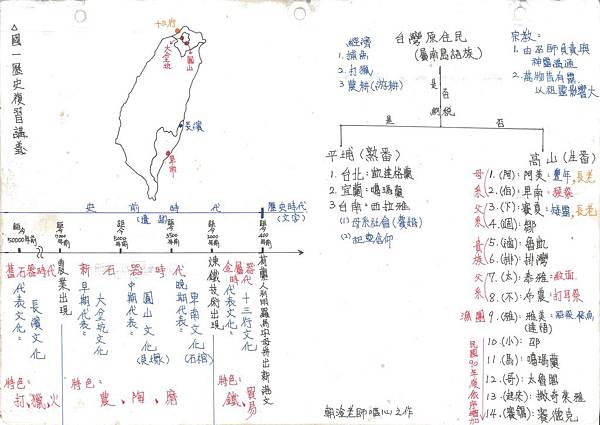 國一歷史複習講義
十三行
大坌坑
圓山
長濱
卑南
史前時代
(遺跡)
歷史時代
(文字)
距今
50000年前
距今
7000年前
距今
5000年前
距今
3500年前
距今
2000年前
距今
400年前
舊石器時代
代表文化：
長濱文化
特色：
打、獵、火
農業出現
新石器時代
早期代表：
大坌坑文化
中期代表：
圓山文化
(貝塚)
晚期代表：
卑南文化
(石棺)
特色：
農、陶、磨
煉鐵技術出現
金屬器時代
代表文化：
十三行文化
特色：
鐵、貿易
荷蘭人利用羅馬字母拼出新港文
台灣原住民
(屬南島語族)
經濟
1. 捕魚
2. 打獵
3. 農耕(游耕)
宗教：
1. 由巫師負責與
神靈溝通
2. 萬物皆有靈
以祖靈影響大
是
否
納稅
是
否
平埔(熟番)
1. 台北：凱達格蘭
2. 宜蘭：噶瑪蘭
3. 台南：西拉雅
(1) 母系社會
(2) 祀壺信仰
高山(生番)
母系
1. (阿)阿美：豐年,長老
2. (伯)卑南：猴祭
父系
3. (下)賽夏：矮靈,長老
4. (週)鄒
貴族
5. (論)魯凱
6. (排)排灣
父系
7. (太)泰雅：紋面
8. (不)布農：打耳祭
漁團
9. (雅)雅美：飛魚
(達悟)
民國90年後依序增加
10. (小)邵
11. (馬)噶瑪蘭
12. (哥)太魯閣
13. 撒奇萊雅
14. 賽德克
老師嘔心之作